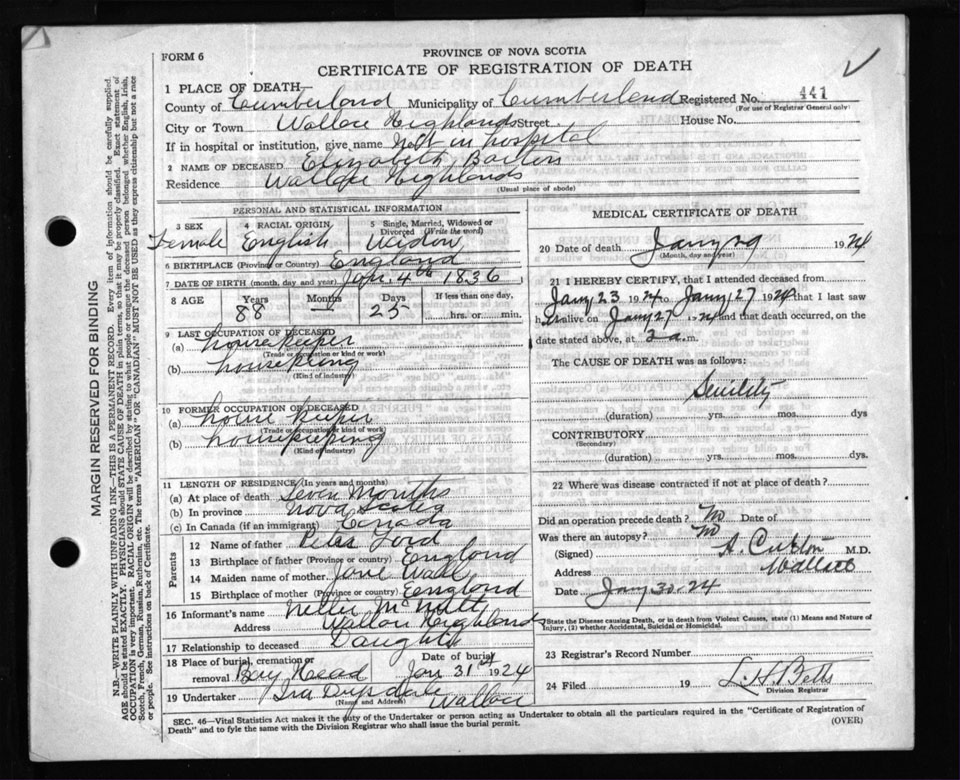 FORM 6
PROVINCE OF NOVA SCOTIA
CERTIFICATE OF REGISTRATION OF DEATH
1 PLACE OF DEATH—
County of Cumberland Municipality of Cumberland Registered No. 441
(For use of Registrar General only)
City or Town Wallace Highlands Street House No.
If in hospital or institution, give name Not in hospital
2 NAME OF DECEASED Elizabeth
Residence Wallace Highlands
(Usual place of abode)
PERSONAL AND STATISTICAL INFORMATION
3 SEX Female
4 RACIAL ORIGIN English
5 Single, Married, Widowed or Divorced (Write the word) Widow
6 BIRTHPLACE (Province or Country) England
7 DATE OF BIRTH (month, day and year) Jan. 4th 1836
8 AGE Years 88 Months — Days 25 If less than one day, hrs. or min.
9 LAST OCCUPATION OF DECEASED
(a) housekeeper
(Trade or occupation or kind or work)
(b) housekeeping
(Kind of industry)
10 FORMER OCCUPATION OF DECEASED
(a) house keeper
(Trade or occupation or kind of work)
(b) housekeeping
(Kind of industry)
11 LENGTH OF RESIDENCE (In years and months)
(a) At place of death Seven Months
(b) In province Nova Scotia
(c) In Canada (if an immigrant) Canada
Parents
12 Name of father Peter Lord
13 Birthplace of father (Province or country) England
14 Maiden name of mother Jane
15 Birthplace of mother (Province or country) England
16 Informant's name Nellie McNutt
Address Wallace Highlands
17 Relationship to deceased Daughter
18 Place of burial, cremation or removal Bay Head Date of burial Jan 31st 1924
19 Undertaker Ira Drysdale Wallace
(Name and Address)
MEDICAL CERTIFICATE OF DEATH
20 Date of death Jany 29 1924
(Month, day and year)
21 I HEREBY CERTIFY, that I attended deceased from
Jany 23 1924 to Jany 27 1924 that I last saw
her alive on Jany 27 1924 and that death occurred, on
date stated above, at 3 a.m.
The CAUSE OF DEATH was as follows:
Senility
(duration) yrs. mos. dys
CONTRIBUTORY
(Secondary)
(duration) yrs. mos. dys.
22 Where was disease contracted if not at place of death?
Did an operation precede death? No Date of
Was there an autopsy? No
(Signed) M.D.
Address Wallace
Date Jany 30. 24
*State the Disease causing Death, or in death from Violent Causes, state (1) Means and Nature of
Injury, (2) whether Accidental, Suicidal or Homicidal.
23 Registrar's Record Number
24 Filed 19 L. H. Betts
Division Registrar
SEC. 46—Vital Statistics Act makes it the duty of the Undertaker or person acting as Undertaker to obtain all the particulars required in the "Certificate of Registration of
Death" and to fyle the same with the Division Registrar who shall issue the burial permit.
(OVER)
MARGIN RESERVED FOR BINDING
N.B.—WRITE PLAINLY WITH UNFADING INK—THIS IS A PERMANENT RECORD. Every item of information should be carefully supplied.
AGE should be stated EXACTLY. PHYSICIANS should STATE CAUSE OF DEATH in plain terms, so that it may be properly classified. Exact statement of
OCCUPATION is very important. RACIAL ORIGIN will be described by stating to what people or tongue the deceased person belonged whether English, Irish,
Scotch, French, German, Russian, Ruthenian, etc. The terms "AMERICAN" OR "CANADIAN" MUST NOT BE USED as they express citizenship but not a race
or people. See instructions on back of Certificate.